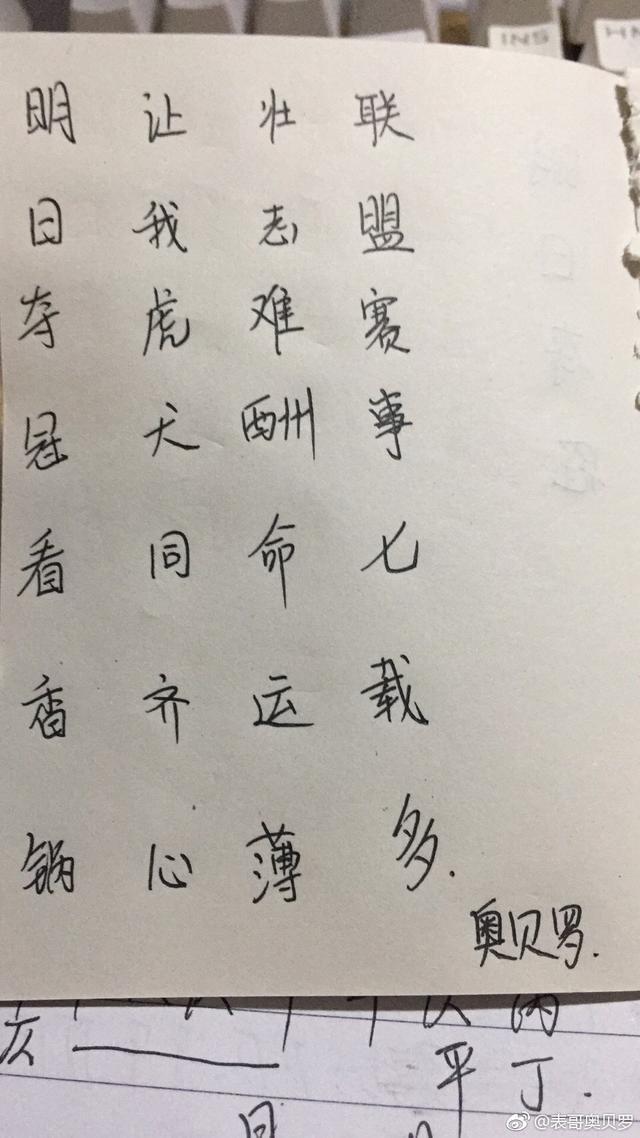 INS
联盟赛事七载多.
壮志难酬命运薄
让我虎犬同齐心
明日夺冠看香锅
奥贝罗.
平丁.
@表哥奥贝罗